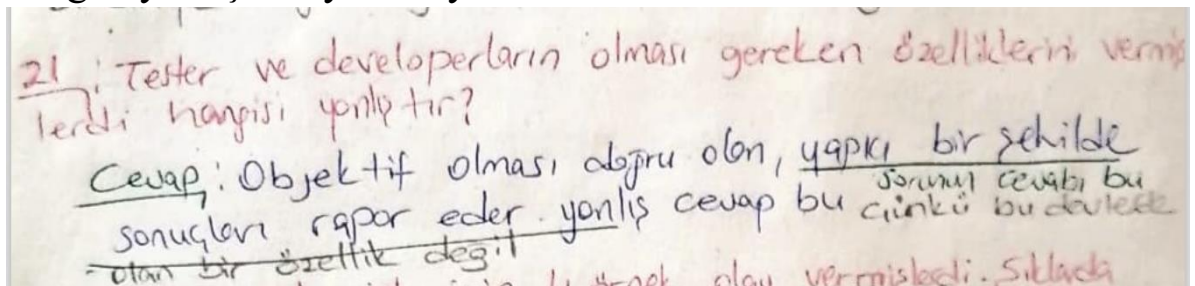 21: Tester ve developerların olması gereken özelliklerini vermiş
lerdi hangisi yanlıştır?
Cevap: Objektif olması doğru olan, yapıcı bir şekilde
sorunun cevabı bu
sonuçları rapor eder. yanlış cevap bu çünkü bu
olan bir özellik değil
örnek olay vermişlerdi. Şıklarda